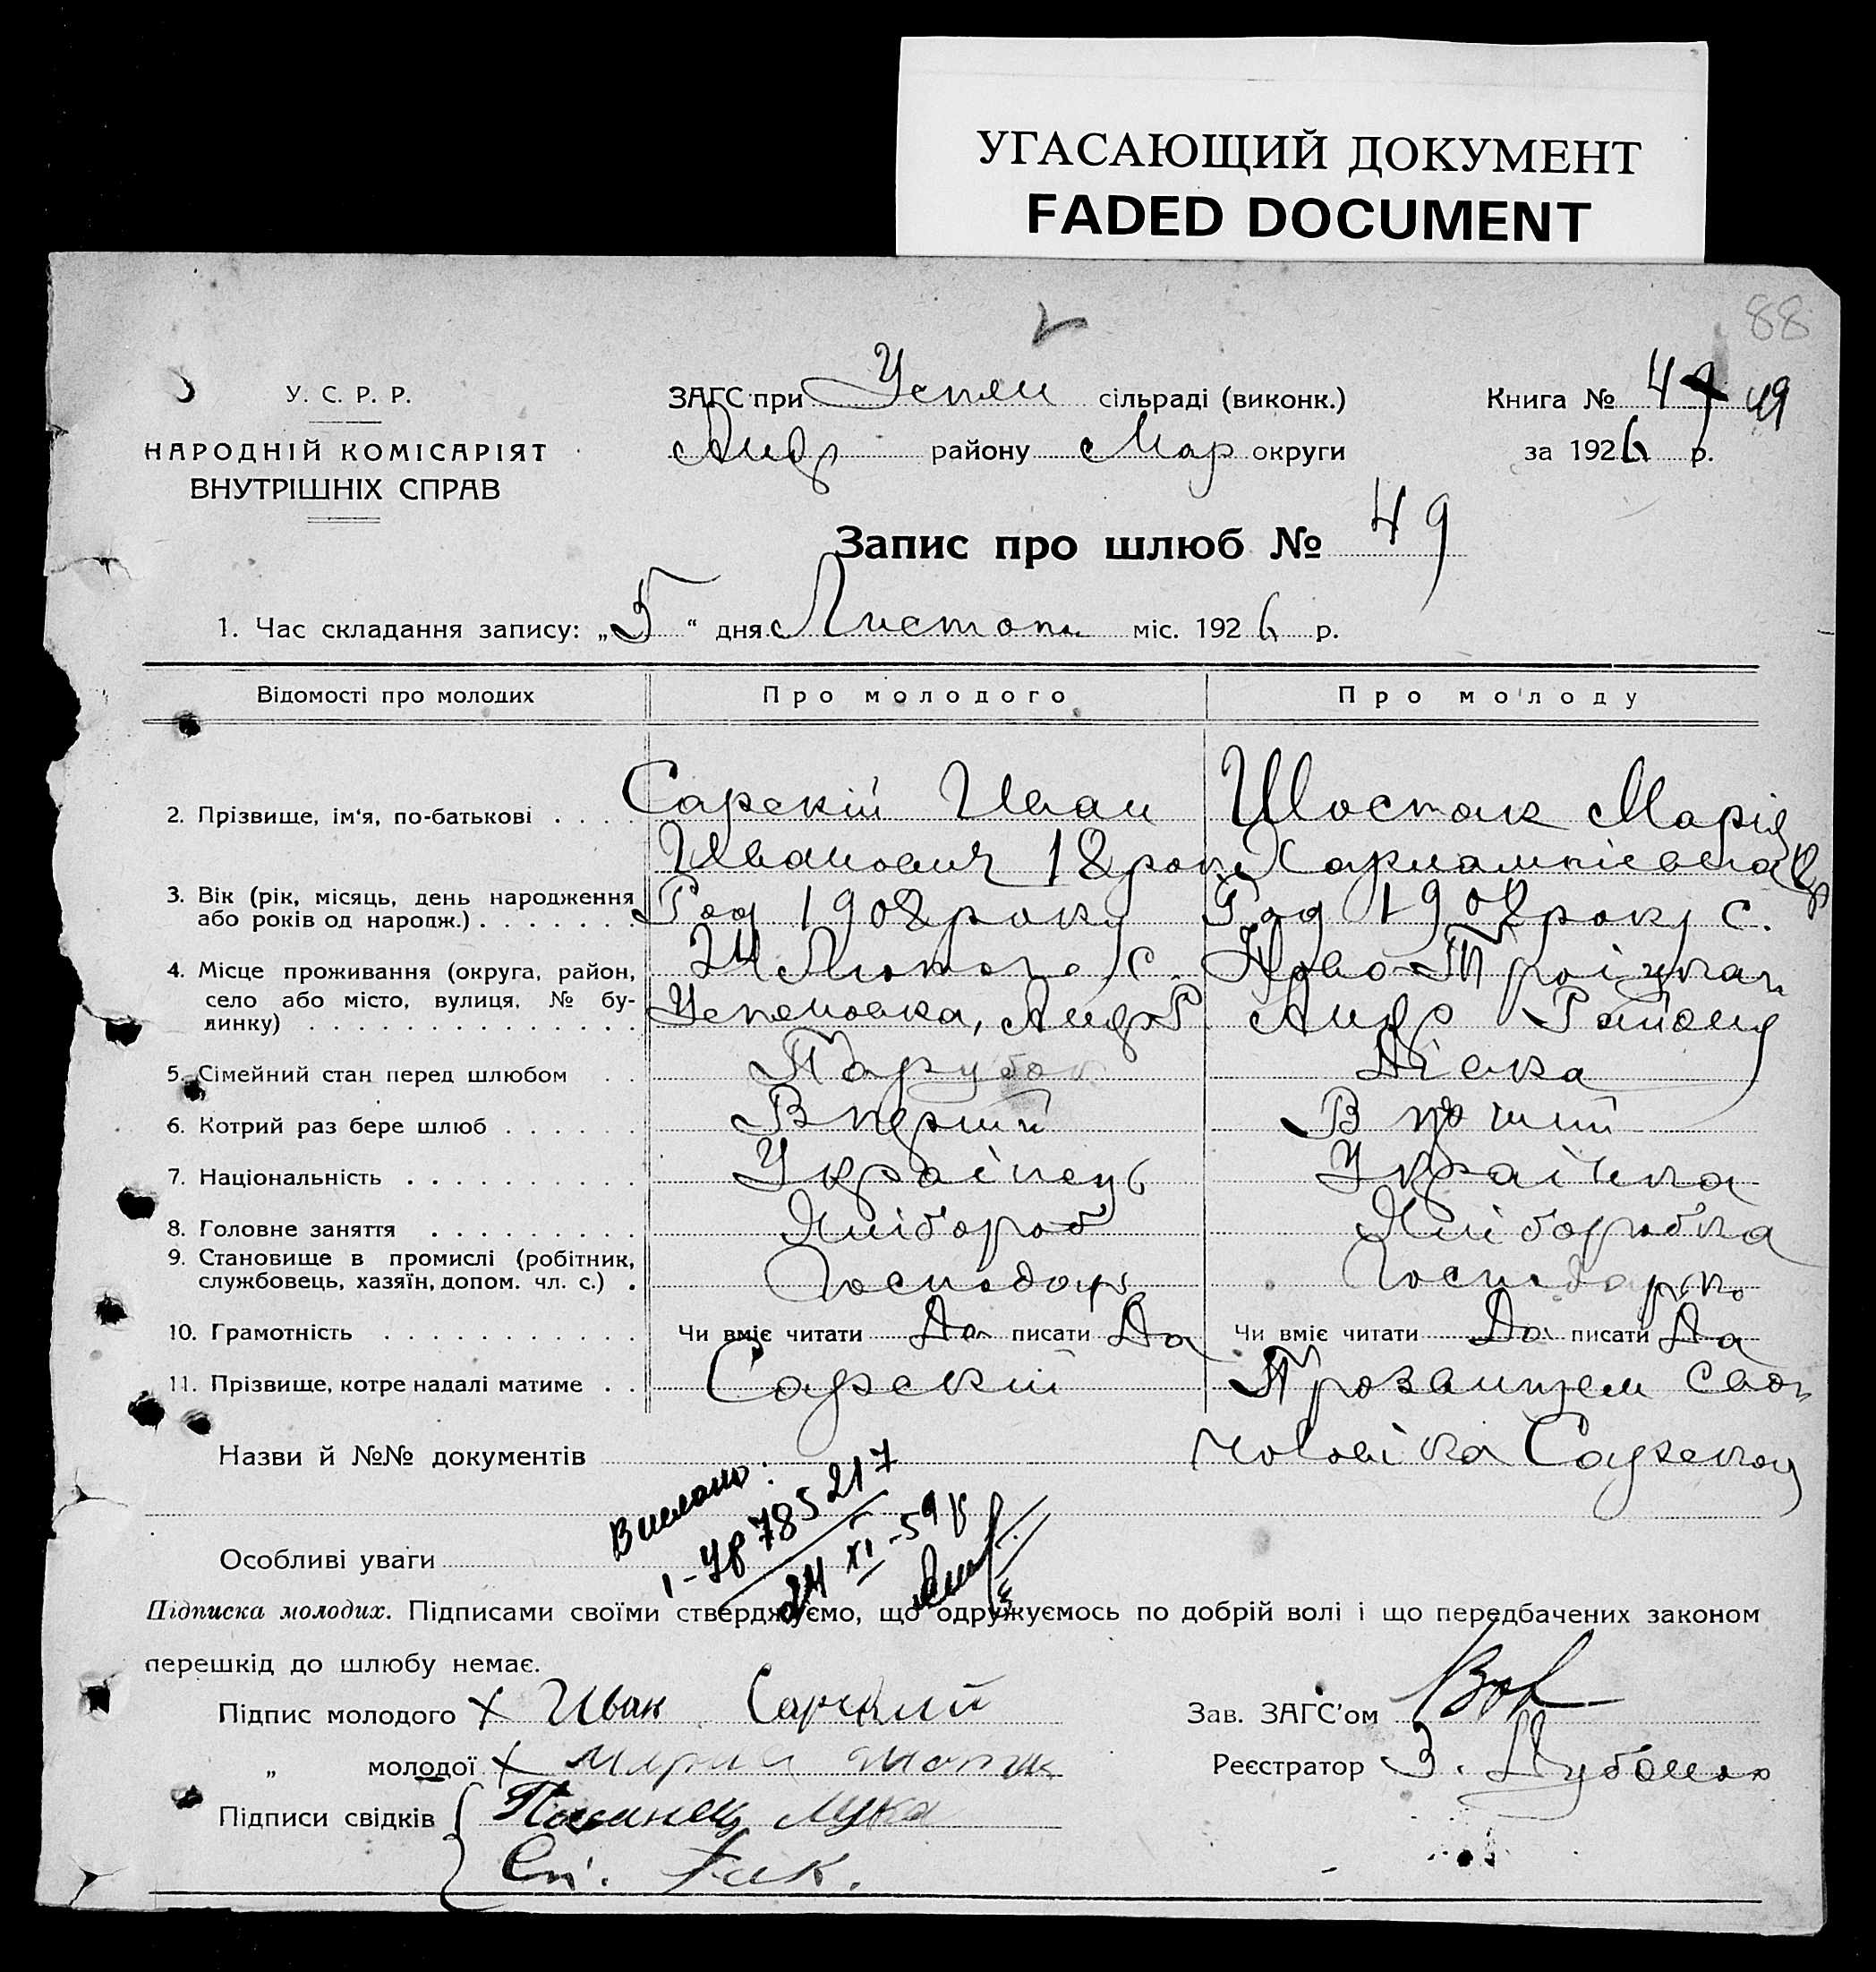 УГАСАЮЩИЙ ДОКУМЕНТ
FADED DOCUMENT
88
У. С. Р. Р.
НАРОДНІЙ КОМІСАРІЯТ
ВНУТРІШНІХ СПРАВ
ЗАГС при Успен сільраді (виконк.)
Андр району Мар округи
Книга № 49
за 1926 р.
Запис про шлюб № 49
1. Час складання запису: „5“ дня Листопа міс. 1926 р.
Відомості про молодих Про молодого Про молоду
2. Прізвище, ім'я, по-батькові . . . . Сарский Иван Шостак Марія
Иванович 18 рок Харлампієвна
3. Вік (рік, місяць, день народження
або років од народж.) . . . . . . . Род 1908 року Род 1908 року с.
4. Місце проживання (округа, район,
село або місто, вулиця, № бу-
динку) . . . . . . . . . . . . . .
24 Лютого с. Ново-Троіцька
Успеновка, Андр Р. Андр Району
5. Сімейний стан перед шлюбом . . Парубок Дівка
6. Котрий раз бере шлюб . . . . . . Вперший В перший
7. Національність . . . . . . . . . . Українець Українка
8. Головне заняття . . . . . . . . . Хлібороб Хліборобка
9. Становище в промислі (робітник,
службовець, хазяїн, допом. чл. с.) . Господарь
10. Грамотність . . . . . . . . . . . Чи вміє читати Да писати Да Чи вміє читати Да писати Да
11. Прізвище, котре надалі матиме . . Сарский Прозвищем свои
Назви й №№ документів чоловіка Сарскою
Вислано:
24 XI-59
Особливі уваги
Підписка молодих. Підписами своїми стверджуємо, що одружуємось по добрій волі і що передбачених законом
перешкід до шлюбу немає.
Підпис молодого х Иван Сарский Зав. ЗАГС'ом
„ молодої х Мария Шостак Реєстратор З.
Підписи свідків Лука